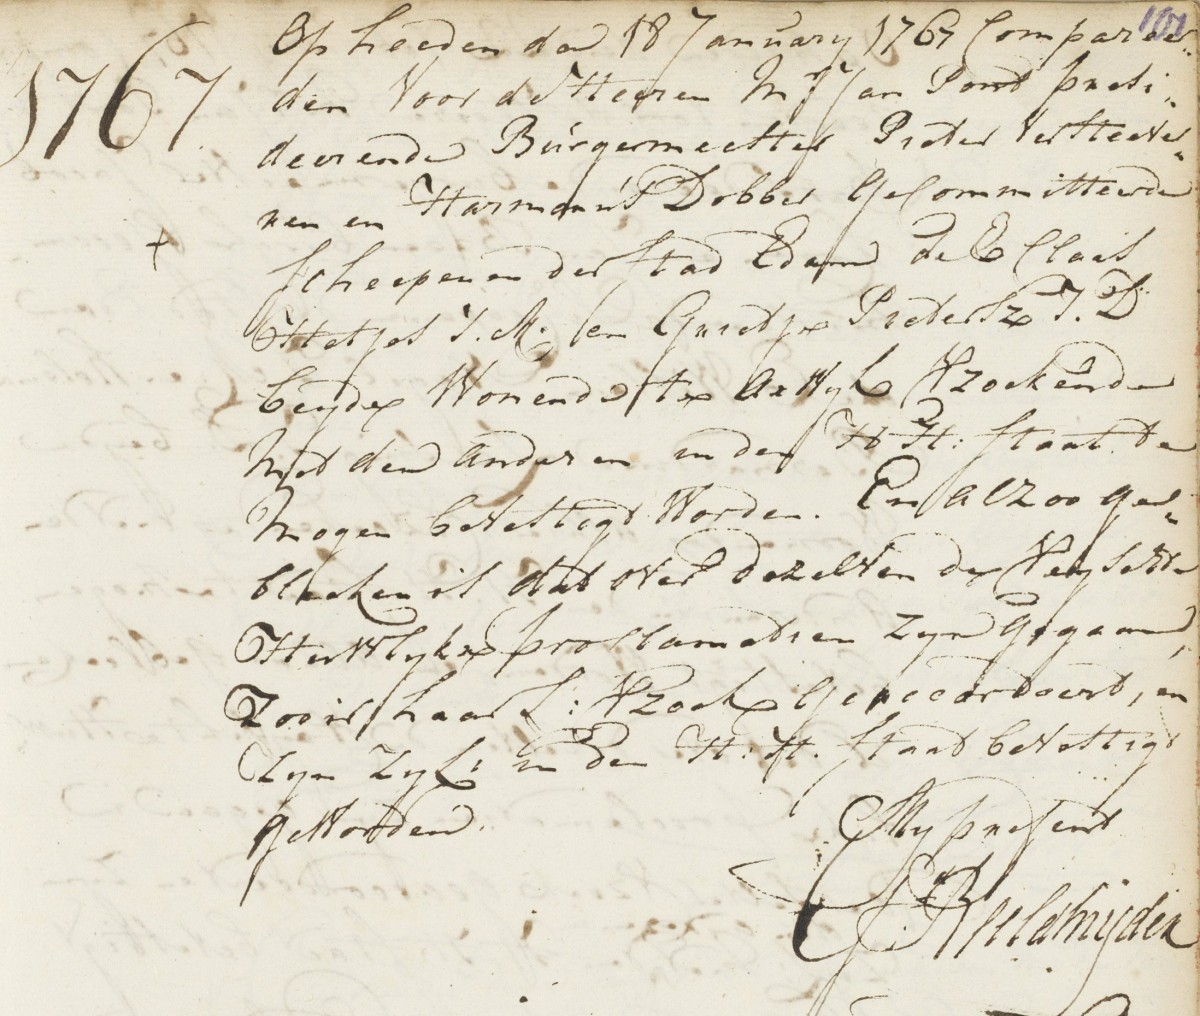 1767
Op heeden den 18 January 1767 Comparee„
den Voor de Heeren Mr Jan Pont presi„
deerende Burgermeester Pieter Versteeve„
nen en Harmanus Dobber Gecommitteerde
scheepenen der stad Edam de E Claas
Hetjes J. M: en Guertje Pieters J. D
beyde Wonende te Axwyk Vzoekende
met den anderen in den H: H: staat te
mogen bevestigt Worden. En alzoo ge„
bleeken is dat over dezelven de Veyschte
Huwlykse proclamatien zyn gegaan,
Zoo is haar L: Vzoek geaccordeert, en
Zyn Zyl: in den H: H. staat bevestigt
geworden.
My present